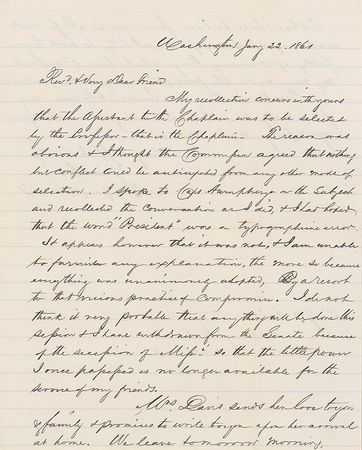 Washington Jany 22. 1861
Revd. & Very Dear Friend
My recollection concurs with yours
that the Assistant to the Chaplain was to be selected
by the Professor - that is the Chaplain - The reason was
obvious & I thought the Commission agreed that nothing
but conflict could be anticipated from any other mode of
selection. I spoke to Cap Humphreys on the Subject
and recollected the Conversation as I did, & I had hoped
that the word "President" was a typographic error.
It appears however that it was not, & I am unable
to furnish any explanation, the more so because
everything was unanimously adopted, by a resort
to that vicious practise of Compromise. I do not
think it very probable that anything will be done this
session & I have withdrawn from the Senate because
of the secession of Missi. so that the little power
I once possessed is no longer available for the
service of my friends.
Mrs. Davis sends her love to you
& family & promises to write to you upon her arrival
at home. We leave tomorrow morning.